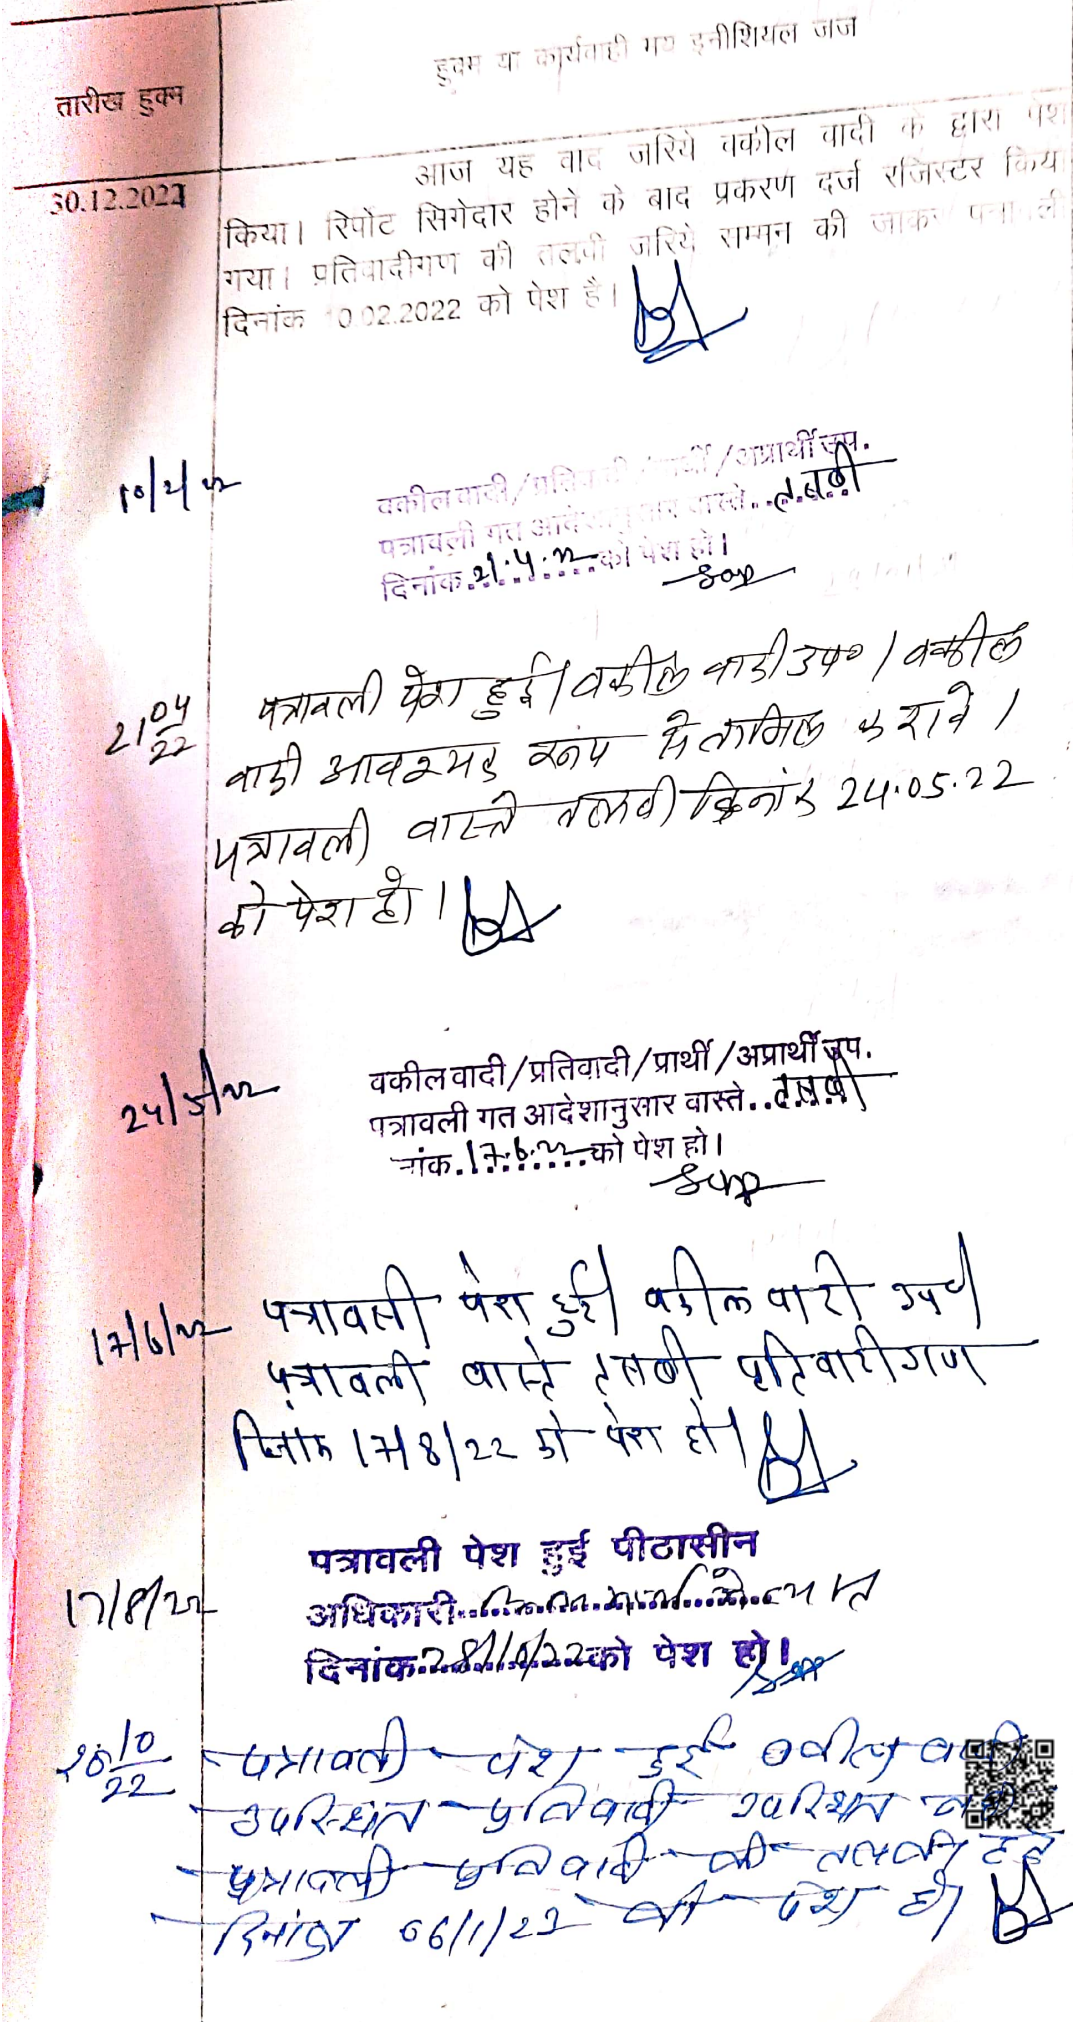 हुक्म या कार्यवाही मय इनीशियल जज
तारीख हुक्म
आज यह वाद जरिये वकील वादी के द्वारा पेश
30.12.2021
किया। रिपोट सिगेदार होने के बाद प्रकरण दर्ज रजिस्टर किया
गया। प्रतिवादीगण की तलवी जरिये सम्मन की जाकर पत्रावली
दिनांक 10.02.2022 को पेश है।
10/2/22
वकील वादी/प्रतिवादी/प्रार्थी/अप्रार्थी उप.
पत्रावली गत आदेशानुसार वास्ते..तलबी
दिनांक.21.4.22.को पेश हो।
21 04/22
पत्रावली पेश हुई। वकील वादी उप० । वकील
वादी आवश्यक रूप से तामिल करावे ।
पत्रावली वास्ते तलबी दिनांक 24.05.22
को पेश हो ।
24/5/22
वकील वादी/प्रतिवादी/प्रार्थी/अप्रार्थी उप.
पत्रावली गत आदेशानुसार वास्ते..तलबी
नांक.17.6.22.को पेश हो।
17/6/22
पत्रावली पेश हुई। वकील वादी उप०।
पत्रावली वास्ते तलबी प्रतिवादीगण
दिनांक 17/8/22 को पेश हो।
17/8/22
पत्रावली पेश हुई पीठासीन
अधिकारी
दिनांक 28/10/22 को पेश हो।
28 10/22
पत्रावली पेश हुई वकील वादी
उपस्थित प्रतिवादी उपस्थित नही
पत्रावली प्रतिवादी की तलबी हेतु
दिनांक 06/1/23 को पेश हो।